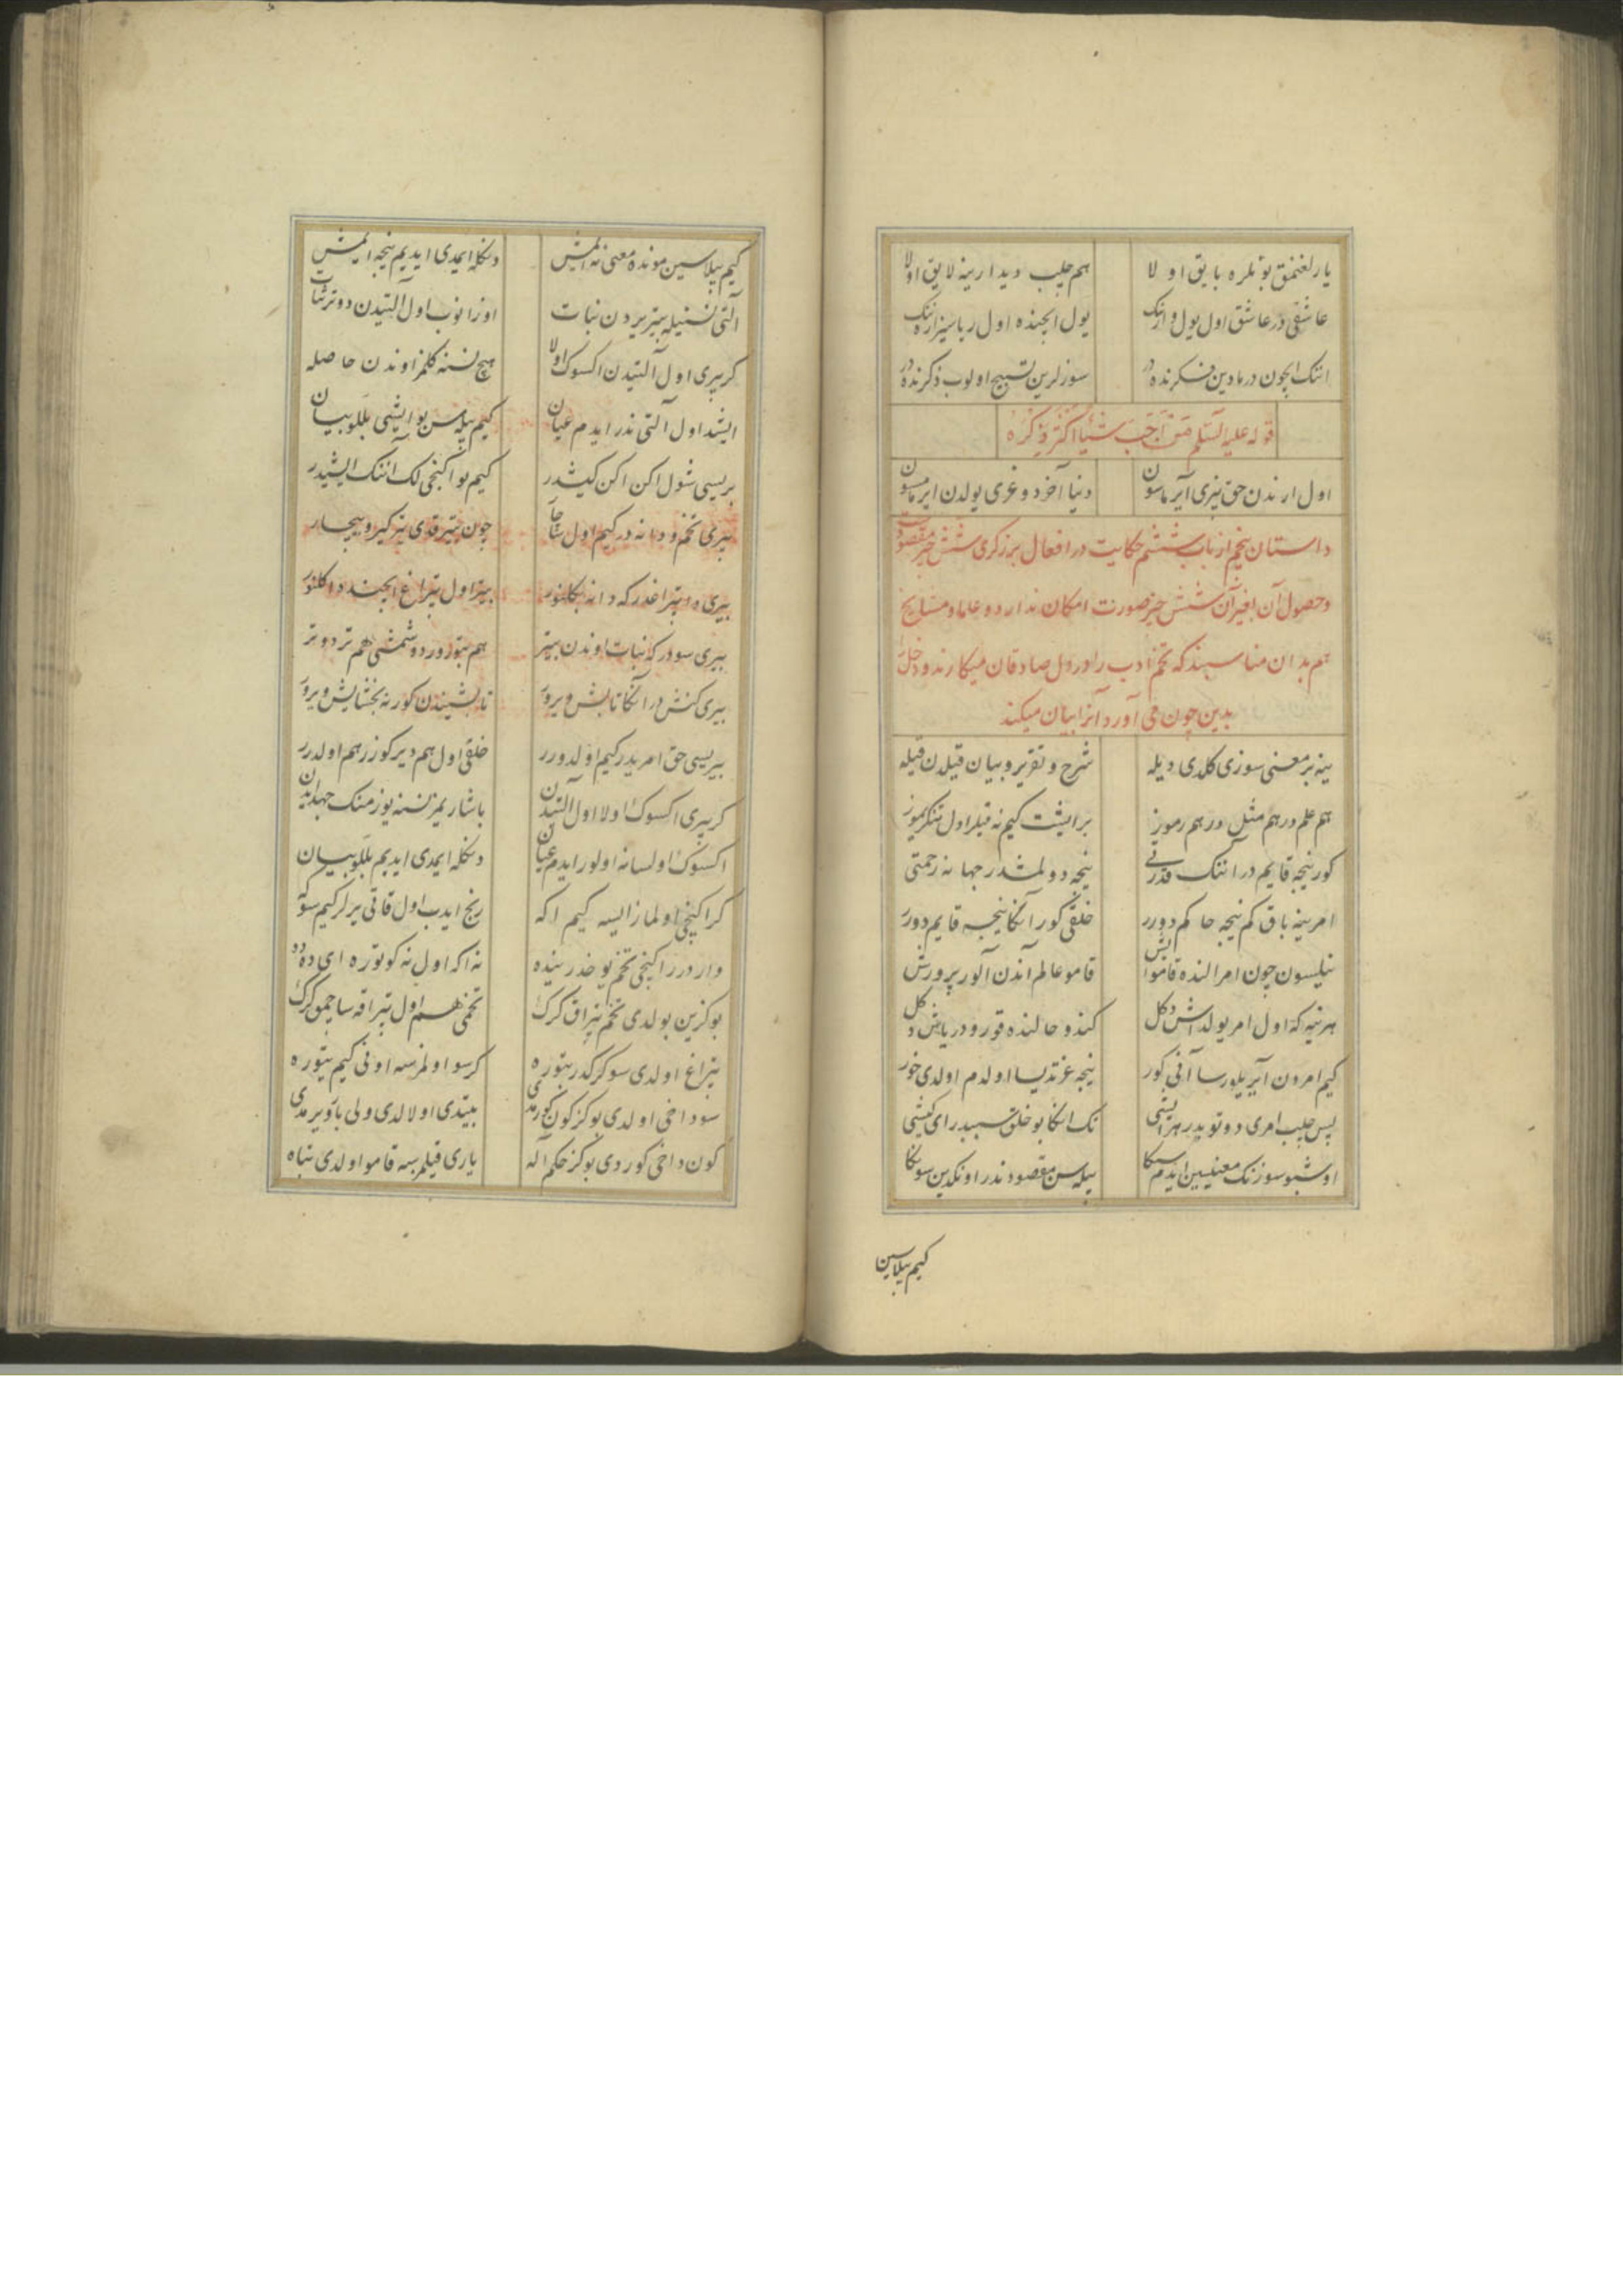 یارلغنمق بونلره بایق اولا هم چلب دیدارینه لایق اولا
عاشقی در عاشق اول یول وارنک یول ایچنده اول ریاسیز ارنک
انک ایچون درمادین فکرنده در سوزلرین تسبیح اولوب ذکرنده در
قوله علیه السلم من احب شیئا اکثر ذکره
اول ارندن حق بیزی آیرماسون دنیا آخر دوغری یولدن ایرماسون
داستان پنجم از باب ششم حکایت در افعال برزکری شش چیز مقصودست
وحصول آن بغیر آن شش چیز صورت امکان ندارد و علما و مشایخ
هم بدان مناسبند که تخم ادب را در دل صادقان میکارند و دخل
بدین چون می آورد آنرا بیان میکند
ینه بر معنی سوزی کلدی دیله شرح و تقریر و بیان قیلدن قیله
هم علم در هم مثل در هم رموز بر ایشت کیم نه قیلر اول تنکریموز
کور نیجه قایم در انک قدرتی نیجه دولمشدر جهانه رحمتی
امرینه باق کم نیجه حاکم دورر خلقی کور آنکا نیجه قایم دورر
نیلسون چون امر النده قامو ایش قامو عالم آندن آلور پرورش
هر نیه که اول امر یولداش دکل کندو حالنده قورو در یاش دکل
کیم امردن آیریلورسا آنی کور نیجه عزتدیسا اولدم اولدی خور
پس چلب امری دوتویدر هر ایشی تک انکا بو خلق سببدر ای کیشی
اوشبو سوزنک معنیسین ایدم سکا بیله سن مقصود ندر اونکدین سونکا
کیم بیلاسین
کیم بیلاسین مونده معنی نه ایمش دنکله ایمدی ایدیم نیجه ایمش
آلتی نسنیله بیتر یردن نبات اوزانوب اول آلتیدن دوتر ثبات
کر بیری اول آلتیدن اکسوک اولا هیچ نسنه کلمز اوندن حاصله
ایشد اول آلتی ندر ایدم عیان کیم بیله سن بو ایشی بللو بیان
بریسی شول اکن اکن کیشدر کیم بو اکنجی لک انک ایشیدر
بیری تخم و دانه در کیم اول ساچار چون بیتر قدی یتر کیرو بیچار
بیری ده بتراغدر که دانه بکلنور بیتر اول بتراغ ایچنده داکلنور
بیری سو در که نبات اوندن بیتر هم بتورور دوشمشی هم تر دوتر
بیری کنش در آنکا تابش ویرور تابشیندن کور نه بخشایش ویرور
بیریسی حق امریدر کیم اولدورر خلقی اول هم دیرکوزر هم اولدرر
کر بیری اکسوک اولا اول آلتیدن باشاریمز نسنه یوز منک جهد ایدن
اکسوک اولسا نه اولور ایدم عیان دنکله ایمدی ایدیم بللو بیان
کر اکنچی اولماز ایسه کیم اکه رنج ایدب اول قاتی یرلر کیم سوکه
وار درر اکنجی تخم یوخدر ینده نه اکه اول نه کوتوره ای دده
بو کزین بولدی تخم بتراق کرک تخمی هم اول بتراقه ساچمق کرک
بتراغ اولدی سو کرکدر بتوره کر سو اولمزسه اونی کیم یتوره
سو داخی اولدی بو کز کون کورمدی بیتدی اولالدی ولی بار ویرمدی
کون داخی کوردی بو کز حکم آله یاری قیلمرسه قامو اولدی تباه